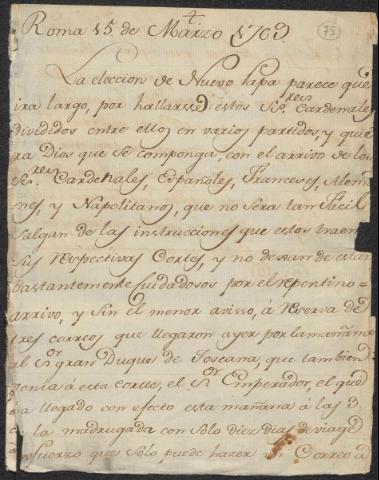 Roma 15 de Marzo 1769.
75
La eleccion de Nuevo Papa parece que
ira largo, por hallarse estos Sres. Cardenales
divididos entre ellos en varios partidos, y que
ra Dios que se componga, con el arrivo de los
Sres. Cardenales, Españoles, Franceses, Alema
nes, y Napolitanos, que no sera tan facil
salgan de las instrucciones que estos traen
sus respectivas Cortes, y no dexan de estar
bastantemente cuidadosos por el repentino
arrivo, y sin el menor avisso, á reserva de
tres correos, que llegaron ayer por la mañana
al Sor. gran Duque de Toscana, que tambien
venia á esta Corte, el Sor. Emperador, el que
a llegado con efecto esta mañana á las 3
la madrugada con solo diez dias de viage
sfuerzo que solo puede hazer Correo á